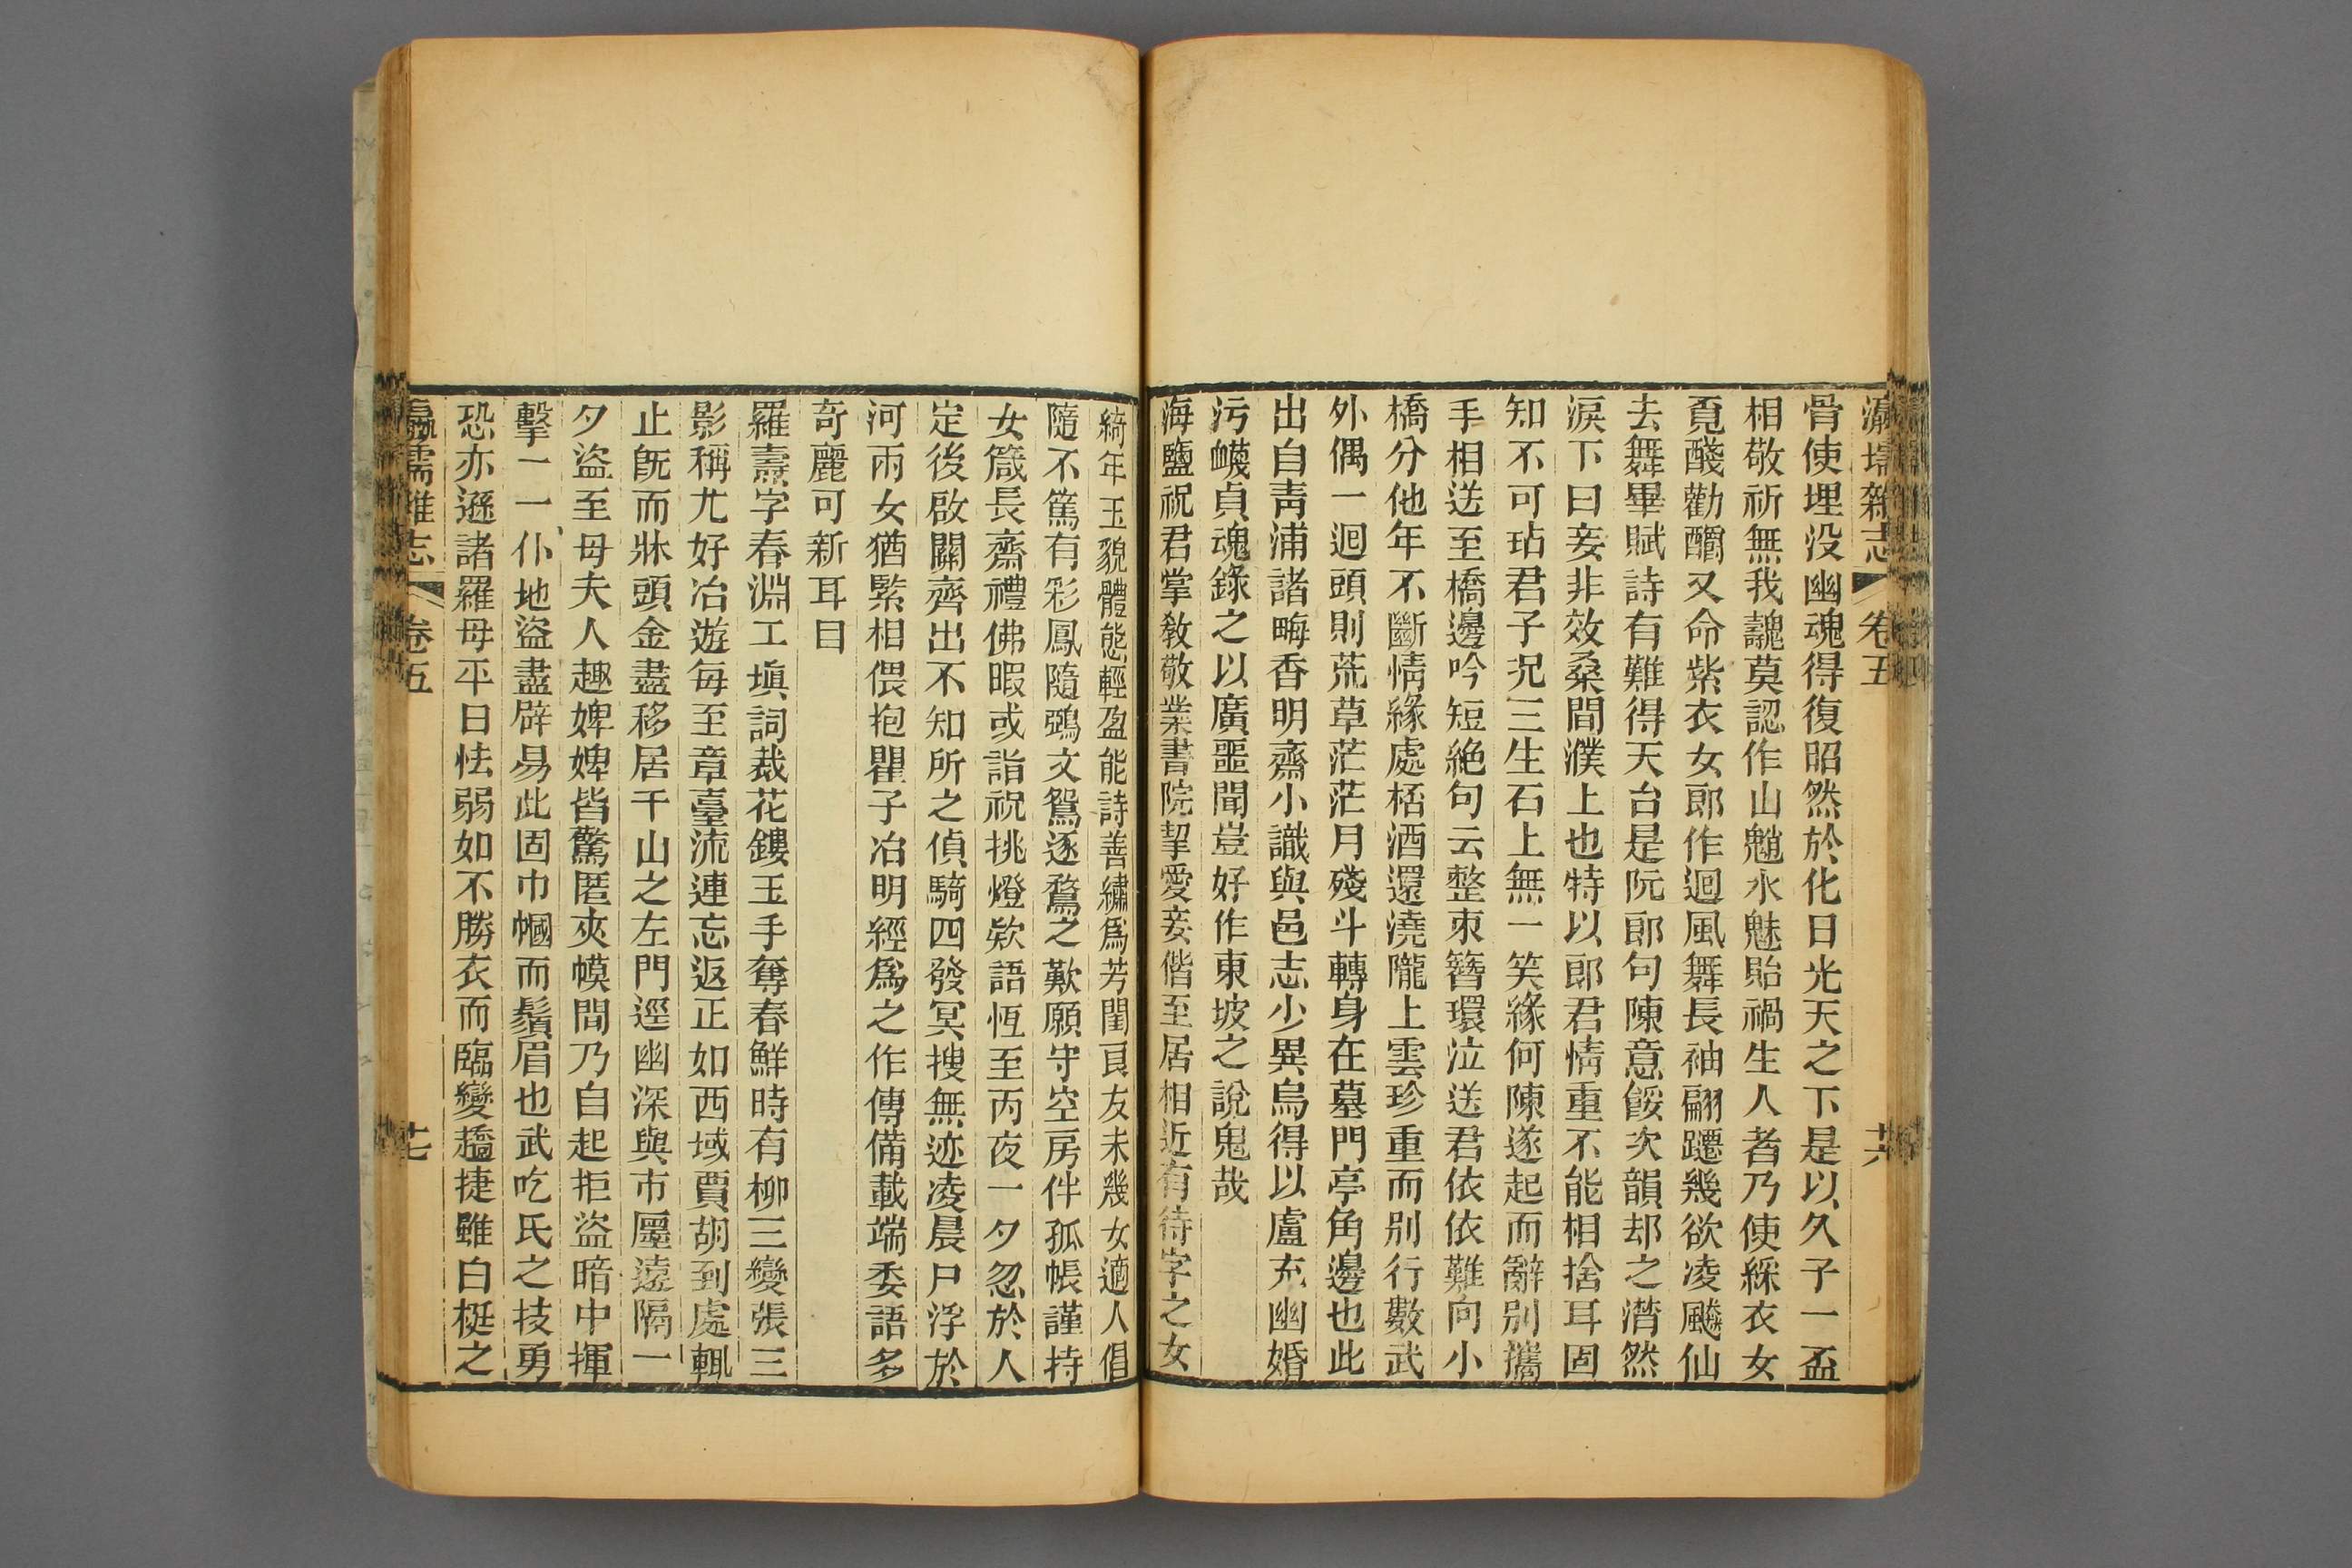 瀛壖雜志 卷五 十六
骨使埋没幽魂得復昭然於化日光天之下是以久子一盃
相敬祈無我讒莫認作山魈水魅貽禍生人者乃使綵衣女
覔醆勸酹又命紫衣女郎作迴風舞長袖翩躚幾欲凌飈仙
去舞畢賦詩有難得天台是阮郎句陳意餒次韻却之潸然
淚下曰妾非效桑間濮上也特以郎君情重不能相捨耳固
知不可玷君子况三生石上無一笑緣何陳遂起而辭别攜
手相送至橋邊吟短絶句云整束簪環泣送君依依難向小
橋分他年不斷情緣處桮酒還澆隴上雲珍重而别行數武
外偶一迴頭則荒草茫茫月殘斗轉身在墓門亭角邊也此
出自靑浦諸畮香明齋小識與邑志少異烏得以盧充幽婚
污衊貞魂錄之以廣噩聞豈好作東坡之說鬼哉
海鹽祝君掌敎敬業書院挈愛妾偕至居相近有待字之女
綺年玉貌體態輕盈能詩善繡爲芳閨頁友未幾女適人倡
隨不篤有彩鳳隨鴉文鴛逐鶩之歎願守空房伴孤帳謹持
女箴長齋禮佛暇或詣祝挑燈欵語恆至丙夜一夕忽於人
定後啟關齊出不知所之偵騎四發冥搜無迹凌晨尸浮於
河兩女猶緊相偎抱瞿子冶明經爲之作傳備載端委語多
奇麗可新耳目
羅壽字春淵工塡詞裁花鏤玉手奪春鮮時有柳三變張三
影稱尤好冶遊每至章臺流連忘返正如西域賈胡到處輒
止旣而牀頭金盡移居千山之左門逕幽深與市廛遠隔一
夕盜至母夫人趣婢婢皆驚匿夾幙間乃自起拒盜暗中揮
擊一一仆地盜盡辟易此固巾幗而鬚眉也武吃氏之技勇
恐亦遜諸羅母平日怯弱如不勝衣而臨變趫捷雖白梃之
瀛壖雜志 卷五 十七